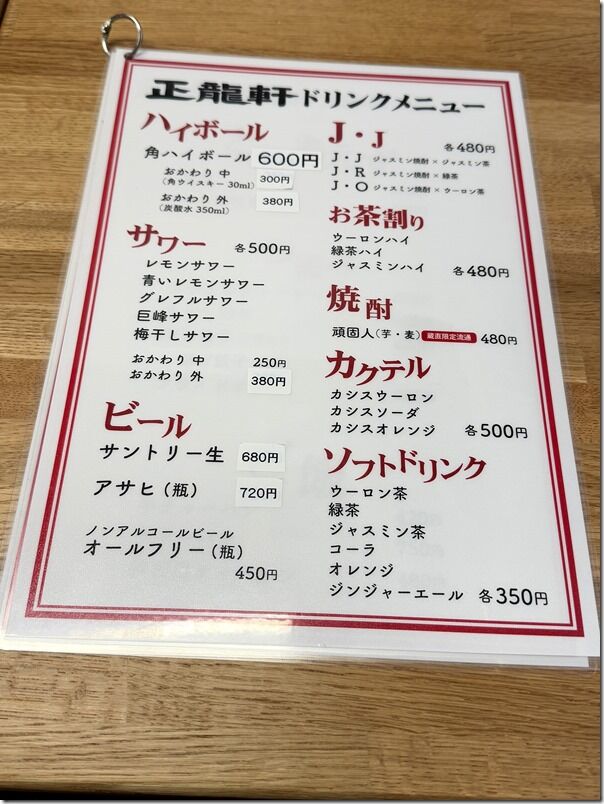 正龍軒ドリンクメニュー
ハイボール
角ハイボール 600円
おかわり 中 300円
(角ウイスキー 30ml)
おかわり 外 380円
(炭酸水 350ml)
サワー 各500円
レモンサワー
青いレモンサワー
グレフルサワー
巨峰サワー
梅干しサワー
おかわり 中 250円
おかわり 外 380円
ビール
サントリー生 680円
アサヒ(瓶) 720円
ノンアルコールビール
オールフリー(瓶)
450円
J・J 各480円
J・J ジャスミン焼酎×ジャスミン茶
J・R ジャスミン焼酎×緑茶
J・O ジャスミン焼酎×ウーロン茶
お茶割り
ウーロンハイ
緑茶ハイ
ジャスミンハイ 各480円
焼酎
頑固人(芋・麦) 蔵直限定流通 480円
カクテル
カシスウーロン
カシスソーダ
カシスオレンジ 各500円
ソフトドリンク
ウーロン茶
緑茶
ジャスミン茶
コーラ
オレンジ
ジンジャーエール 各350円